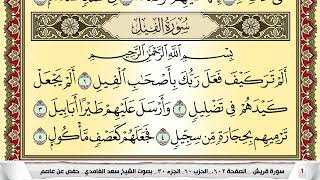 سُورَةُ الْفِيلِ
بِسْمِ اللَّهِ الرَّحْمَٰنِ الرَّحِيمِ
أَلَمْ تَرَ كَيْفَ فَعَلَ رَبُّكَ بِأَصْحَابِ الْفِيلِ ١ أَلَمْ يَجْعَلْ
كَيْدَهُمْ فِي تَضْلِيلٍ ٢ وَأَرْسَلَ عَلَيْهِمْ طَيْرًا أَبَابِيلَ ٣
تَرْمِيهِمْ بِحِجَارَةٍ مِنْ سِجِّيلٍ ٤ فَجَعَلَهُمْ كَعَصْفٍ مَأْكُولٍ
سورة قريش .. الصفحة ٦٠٢ .. الحزب ٦٠ .. الجزء ٣٠ .. بصوت الشيخ سعد الغامدي .. حفص عن عاصم
1